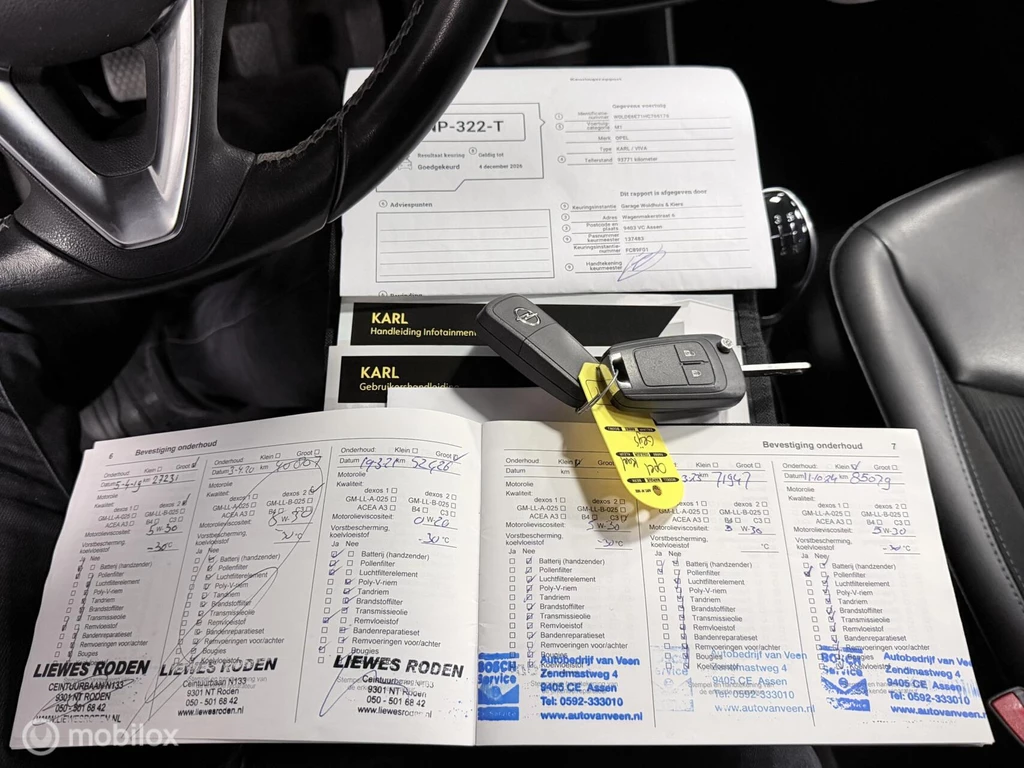 Gegevens voertuig
NP-322-T
Resultaat keuring
Goedgekeurd
Geldig tot
4 december 2026
Adviespunten
Identificatie-
nummer
Voertuig-
categorie M1
Merk OPEL
Type KARL / VIVA
Tellerstand 93771 kilometer
Dit rapport is afgegeven door
Keuringsinstantie Garage Woldhuis & Kiers
Adres Wagenmakerstraat 6
Postcode en
plaats 9403 VC Assen
Pasnummer
keurmeester 137483
Keuringsinstantie-
nummer
Handtekening
keurmeester
KARL
Handleiding Infotainment
KARL
Gebruikershandleiding
Opel Karl
6 Bevestiging onderhoud
Onderhoud: Klein Groot
Datum 5-4-19 km 27231
Motorolie
Kwaliteit:
dexos 1 dexos 2
GM-LL-A-025 GM-LL-B-025
ACEA A3 B4 C3
Motorolieviscositeit: 5W-30
Vorstbescherming,
koelvloeistof -30°C
Ja Nee
Batterij (handzender)
Pollenfilter
Luchtfilterelement
Poly-V-riem
Tandriem
Brandstoffilter
Transmissieolie
Remvloeistof
Bandenreparatieset
Remvoeringen voor/achter
Bougies
LIEWES RODEN
CEINTUURBAAN N133
9301 NT RODEN
050 - 501 68 42
WWW.LIEWESRODEN.NL
Onderhoud: Klein Groot
Datum 3-4-20 km
Motorolie
Kwaliteit:
dexos 1 dexos 2
GM-LL-A-025 GM-LL-B-025
ACEA A3 B4 C3
Motorolieviscositeit: 5W-30
Vorstbescherming,
koelvloeistof -30°C
Ja Nee
Batterij (handzender)
Pollenfilter
Luchtfilterelement
Poly-V-riem
Tandriem
Brandstoffilter
Transmissieolie
Remvloeistof
Bandenreparatieset
Remvoeringen voor/achter
Bougies
Koelvloeistof
LIEWES RODEN
Ceintuurbaan N133
9301 NT Roden
050 - 501 68 42
www.liewesroden.nl
Onderhoud: Klein Groot
Datum km 52426
Motorolie
Kwaliteit:
dexos 1 dexos 2
GM-LL-A-025 GM-LL-B-025
ACEA A3 B4 C3
Motorolieviscositeit: 0W-20
Vorstbescherming,
koelvloeistof -30°C
Ja Nee
Batterij (handzender)
Pollenfilter
Luchtfilterelement
Poly-V-riem
Tandriem
Brandstoffilter
Transmissieolie
Remvloeistof
Bandenreparatieset
Remvoeringen voor/achter
Bougies
LIEWES RODEN
Ceintuurbaan N133
9301 NT Roden
050 - 501 68 42
www.liewesroden.nl
Bevestiging onderhoud 7
Onderhoud: Klein Groot
Datum km
Motorolie
Kwaliteit:
dexos 1 dexos 2
GM-LL-A-025 GM-LL-B-025
ACEA A3 B4 C3
Motorolieviscositeit: 5W-30
Vorstbescherming,
koelvloeistof -30°C
Ja Nee
Batterij (handzender)
Pollenfilter
Luchtfilterelement
Poly-V-riem
Tandriem
Brandstoffilter
Transmissieolie
Remvloeistof
Bandenreparatieset
Remvoeringen voor/achter
Bougies
BOSCH
Service
Autobedrijf van Veen
Zendmastweg 4
9405 CE, Assen
Tel: 0592-333010
www.autovanveen.nl
Klein Groot
km 71947
dexos 1 dexos 2
GM-LL-A-025 GM-LL-B-025
ACEA A3 B4 C3
Motorolieviscositeit: 5 W-30
Vorstbescherming,
koelvloeistof °C
Ja Nee
Batterij (handzender)
Pollenfilter
Luchtfilterelement
Poly-V-riem
Tandriem
Brandstoffilter
Transmissieolie
Remvloeistof
Bandenreparatieset
Remvoeringen voor/achter
Bougies
Koelvloeistof
Autobedrijf van Veen
Zendmastweg 4
9405 CE, Assen
Tel: 0592-333010
www.autovanveen.nl
Onderhoud: Klein Groot
Datum 1-10-24 km 85079
Motorolie
Kwaliteit:
dexos 1 dexos 2
GM-LL-A-025 GM-LL-B-025
ACEA A3 B4 C3
Motorolieviscositeit: 5W-30
Vorstbescherming,
koelvloeistof -30°C
Ja Nee
Batterij (handzender)
Pollenfilter
Luchtfilterelement
Poly-V-riem
Tandriem
Brandstoffilter
Transmissieolie
Remvloeistof
Bandenreparatieset
Remvoeringen voor/achter
Bougies
BOSCH
Service
Autobedrijf van Veen
Zendmastweg 4
9405 CE, Assen
Tel: 0592-333010
www.autovanveen.nl
mobilox